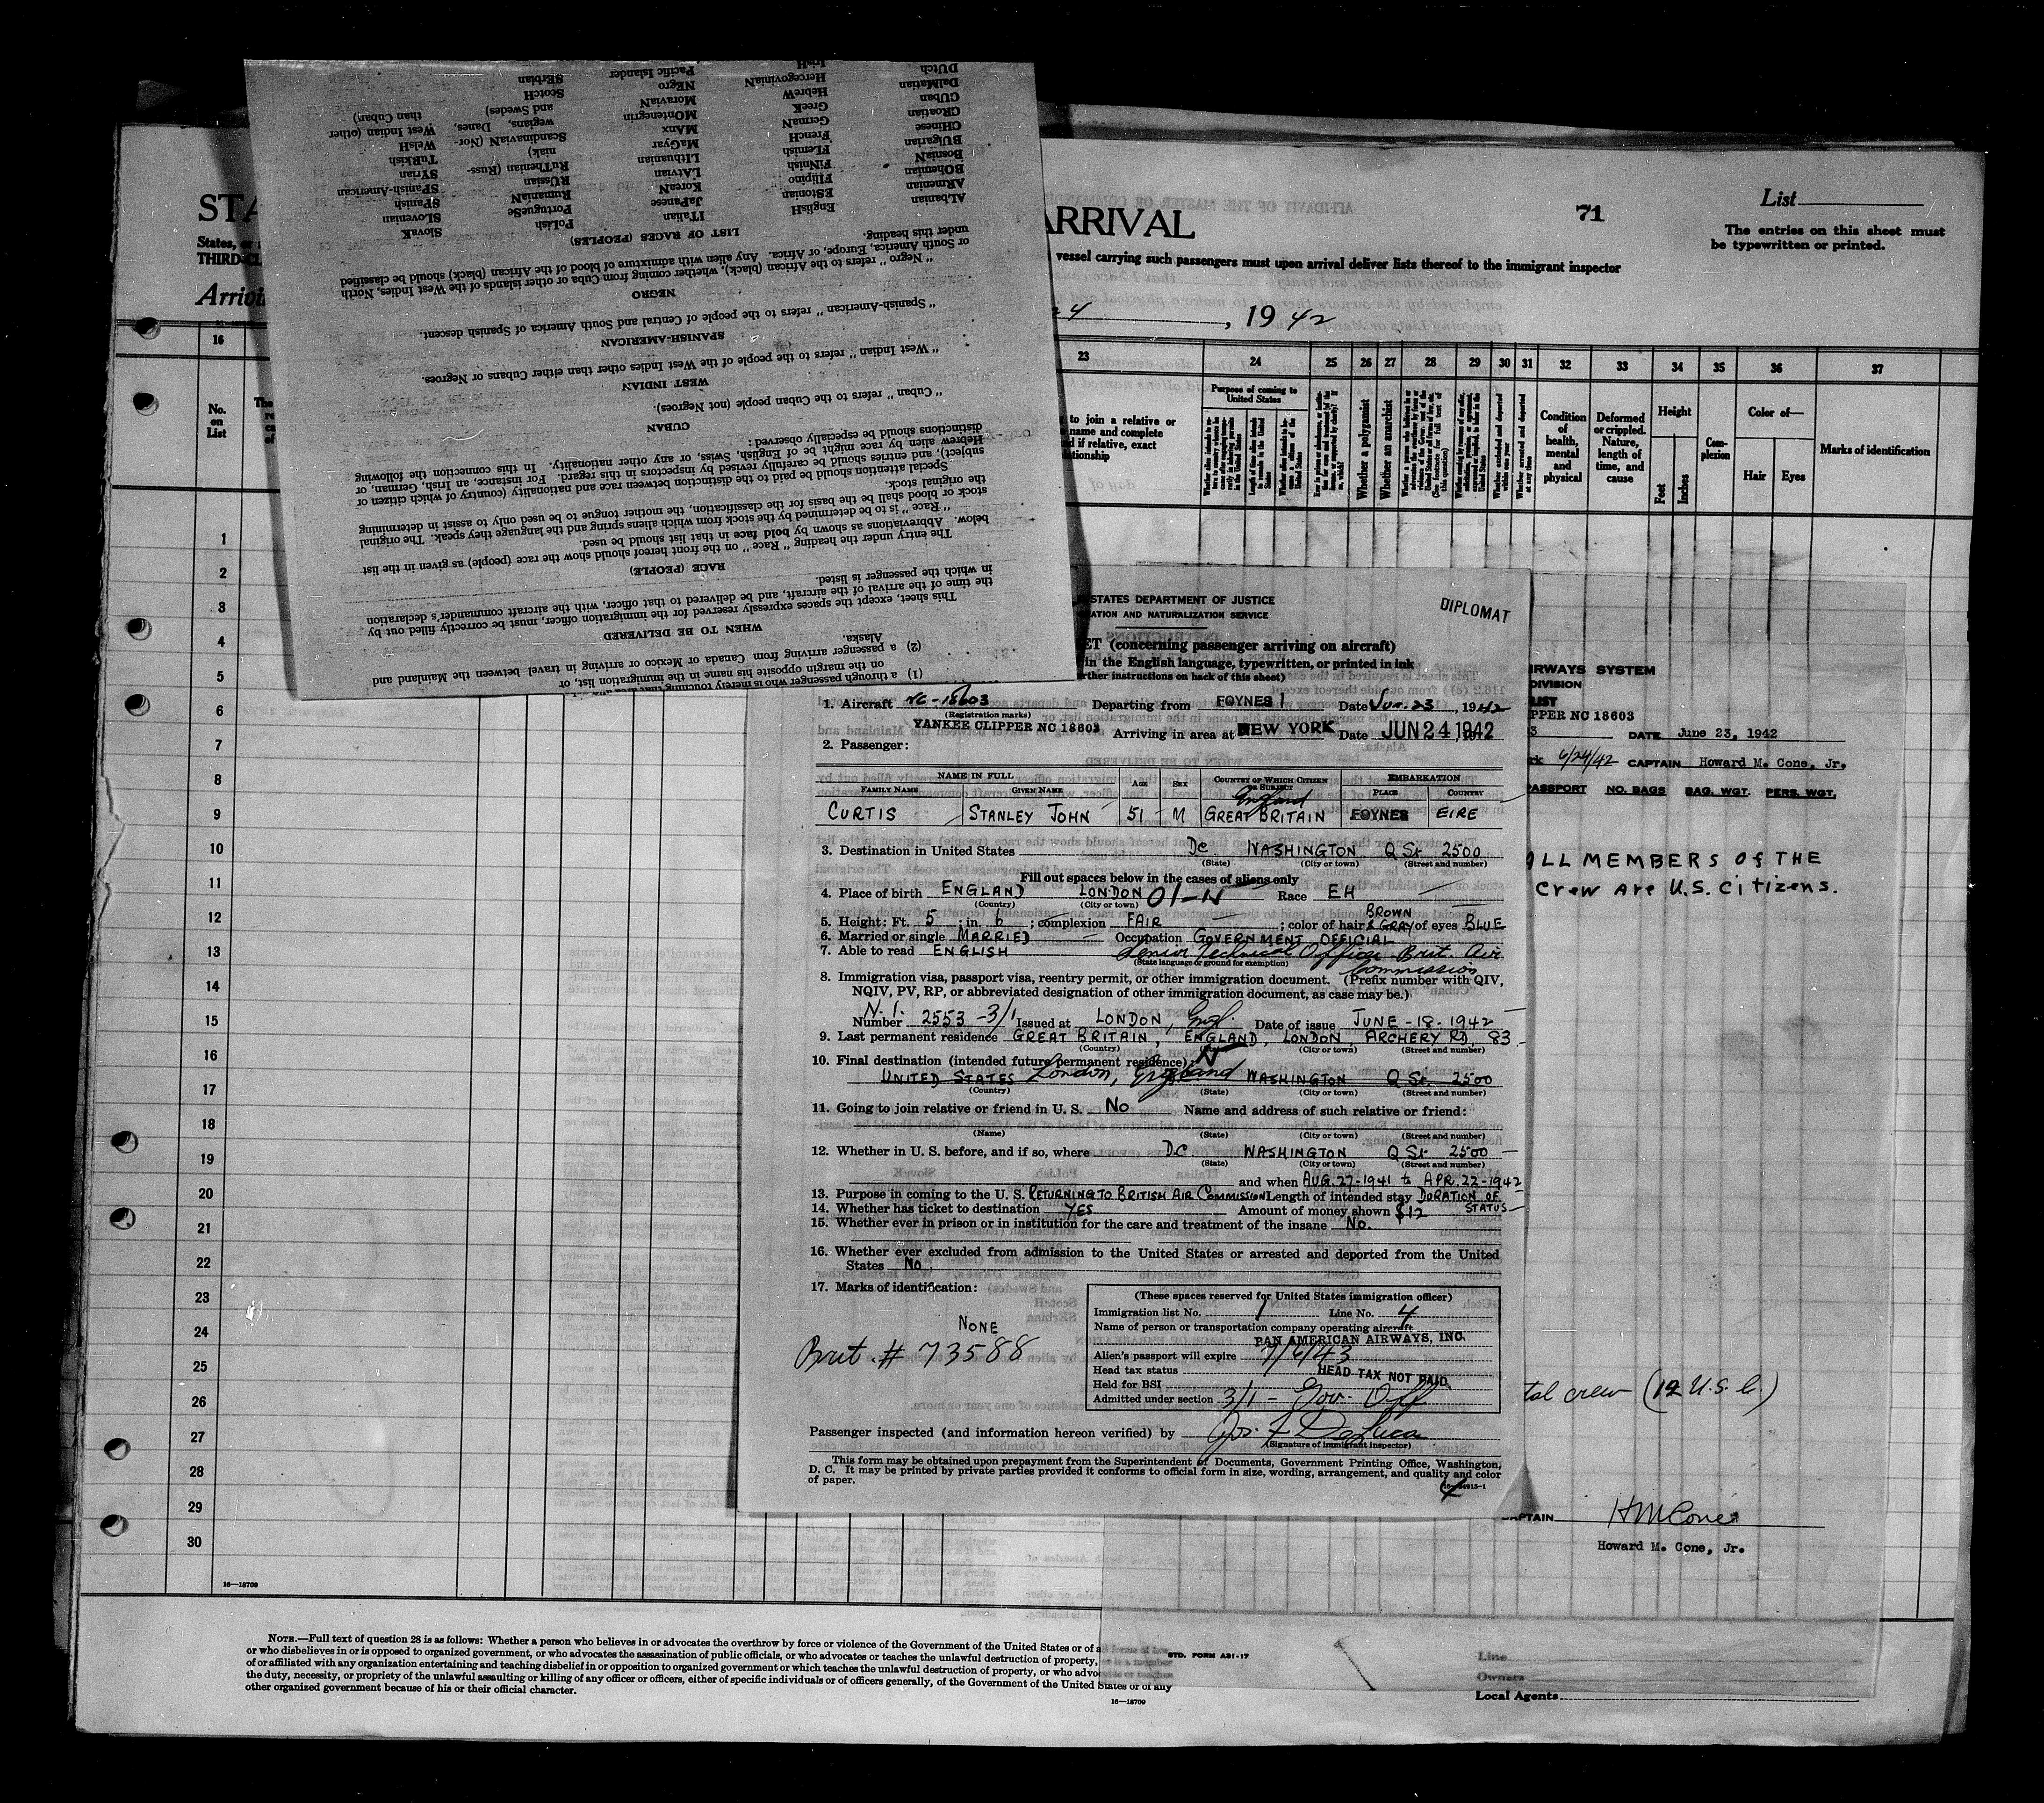 STA
States, or
THIRD-CL
Arrivi
ARRIVAL
71
List
The entries on this sheet must
be typewritten or printed.
vessel carrying such passengers must upon arrival deliver lists thereof to the immigrant inspector
24, 1942
16 23 24 25 26 27 28 29 30 31 32 33 34 35 36 37
No.
on
List
to join a relative or
name and complete
if relative, exact
Purpose of coming to
United States
Whether a polygamist
Whether an anarchist
Condition
of
health,
mental
and
physical
Deformed
or crippled.
Nature,
length of
time, and
cause
Height
Feet
Inches
Com-
plexion
Color of—
Hair Eyes
Marks of identification
1
2
3
4
5
6
7
8
9
10
11
12
13
14
15
16
17
18
19
20
21
22
23
24
25
26
27
28
29
30
16—18709
(1) a through passenger who is merely touching
on the margin opposite his name in the immigration list, or
(2) a passenger arriving from Canada or Mexico or arriving in travel between the Mainland and
Alaska.
WHEN TO BE DELIVERED
This sheet, except the spaces expressly reserved for the immigration officer, must be correctly filled out by
the time of the arrival of the aircraft, and be delivered to that officer, with the aircraft commander's declaration
in which the passenger is listed.
RACE (PEOPLE)
The entry under the heading "Race" on the front hereof should show the race (people) as given in the list
below. Abbreviations as shown by bold face in that list should be used.
"Race" is to be determined by the stock from which aliens spring and the language they speak. The original
stock or blood shall be the basis for the classification, the mother tongue to be used only to assist in determining
the original stock.
Special attention should be paid to the distinction between race and nationality (country of which citizen or
subject), and entries should be carefully revised by inspectors in this regard. For instance, an Irish, German, or
Hebrew alien by race might be of English, Swiss, or any other nationality. In this connection the following
distinctions should be especially observed:
CUBAN
"Cuban" refers to the Cuban people (not Negroes).
WEST INDIAN
"West Indian" refers to the people of the West Indies other than either Cubans or Negroes.
SPANISH-AMERICAN
"Spanish-American" refers to the people of Central and South America of Spanish descent.
NEGRO
"Negro" refers to the African (black), whether coming from Cuba or other islands of the West Indies, North
or South America, Europe, or Africa. Any alien with admixture of blood of the African (black) should be classified
under this heading.
LIST OF RACES (PEOPLES)
AlBanian EnglisH ITaliaN PoLish SlovaK
ARmenian EStonian JaPanese PortugueSe SLOvenian
BOhemian FIlipino KoreaN RumaniaN SPanish
BosniaN FiNnish LAtvian RUssian SPanish-American
BUlgarian FLemish LIthuanian RuThenian (Russ- SYrian
CHinese FrencH MaGyar niak) TuRkish
CRoatian GermaN MAnx ScandinaviaN (Nor- WelsH
CUban GreeK MOntenegrin wegians, Danes, West Indian (other
DalMatian HebreW MoraviaN and Swedes) than Cuban)
DUtch HercegovinIaN NEgro ScotcH
IrisH Pacific Islander SErbian
STATES DEPARTMENT OF JUSTICE
ATION AND NATURALIZATION SERVICE
DIPLOMAT
ET (concerning passenger arriving on aircraft)
in the English language, typewritten, or printed in ink
rther instructions on back of this sheet)
1. Aircraft NC-18603 Departing from FOYNES Date Jun. 23, 1942
(Registration marks)
YANKEE CLIPPER NC 18603 Arriving in area at NEW YORK Date JUN 24 1942
2. Passenger:
NAME IN FULL AGE SEX COUNTRY OF WHICH CITIZEN OR SUBJECT EMBARKATION
FAMILY NAME GIVEN NAME PLACE COUNTRY
England
CURTIS STANLEY JOHN 51 M GREAT BRITAIN FOYNES EIRE
3. Destination in United States DC WASHINGTON Q St 2500
(State) (City or town) (Street and number)
Fill out spaces below in the cases of aliens only
4. Place of birth ENGLAND LONDON 01-N Race EH
(Country) (City or town)
5. Height: Ft. 5; in. 6; complexion FAIR; color of hair BROWN & GRAY of eyes BLUE
6. Married or single MARRIED Occupation GOVERNMENT OFFICIAL
7. Able to read ENGLISH Senior Technical Officer Brit. Air
Commission
(State language or ground for exemption)
8. Immigration visa, passport visa, reentry permit, or other immigration document. (Prefix number with QIV,
NQIV, PV, RP, or abbreviated designation of other immigration document, as case may be.)
N.I.
Number 2553-3/1 Issued at LONDON, Engl. Date of issue JUNE-18-1942
9. Last permanent residence GREAT BRITAIN, ENGLAND, LONDON, ARCHERY RD, 83
(Country) (City or town) (Street and number)
10. Final destination (intended future permanent residence) N
UNITED STATES London, England WASHINGTON Q St. 2500
(Country) (State) (City or town) (Street and number)
11. Going to join relative or friend in U. S. No Name and address of such relative or friend:
(Name) (State) (City or town) (Street and number)
12. Whether in U. S. before, and if so, where D.C. WASHINGTON Q St 2500
(State) (City or town) (Street and number)
and when AUG. 27-1941 to APR. 22-1942
13. Purpose in coming to the U. S. RETURNING TO BRITISH AIR COMMISSION Length of intended stay DURATION OF
STATUS
14. Whether has ticket to destination YES Amount of money shown $12
15. Whether ever in prison or in institution for the care and treatment of the insane No.
16. Whether ever excluded from admission to the United States or arrested and deported from the United
States No
17. Marks of identification:
NONE
Brit. # 73588
(These spaces reserved for United States immigration officer)
Immigration list No. 1 Line No. 4
Name of person or transportation company operating aircraft
PAN AMERICAN AIRWAYS, INC.
Alien's passport will expire 7/6/43
Head tax status HEAD TAX NOT PAID
Held for BSI
Admitted under section 3/1 - Gov. Off
Passenger inspected (and information hereon verified) by Jos. F. DeLuca
(Signature of immigrant inspector)
This form may be obtained upon prepayment from the Superintendent of Documents, Government Printing Office, Washington,
D. C. It may be printed by private parties provided it conforms to official form in size, wording, arrangement, and quality and color
of paper.
4
IRWAYS SYSTEM
DIVISION
LIST
PPER NC 18603
3 DATE June 23, 1942
6/24/42 CAPTAIN Howard M. Cone, Jr.
PASSPORT NO. BAGS BAG. WGT. PERS. WGT.
ALL MEMBERS Of THE
Crew Are U.S. Citizens.
tal crew (12 U.S.C.)
CAPTAIN HMCone
Howard M. Cone, Jr.
NOTE.—Full text of question 28 is as follows: Whether a person who believes in or advocates the overthrow by force or violence of the Government of the United States or of a
or who disbelieves in or is opposed to organized government, or who advocates the assassination of public officials, or who advocates or teaches the unlawful destruction of property,
of or affiliated with any organization entertaining and teaching disbelief in or opposition to organized government or which teaches the unlawful destruction of property, or who advo
the duty, necessity, or propriety of the unlawful assaulting or killing of any officer or officers, either of specific individuals or of officers generally, of the Government of the United States or of any
other organized government because of his or their official character.
STD. FORM A31-17
16—18709
Line
Owners
Local Agents